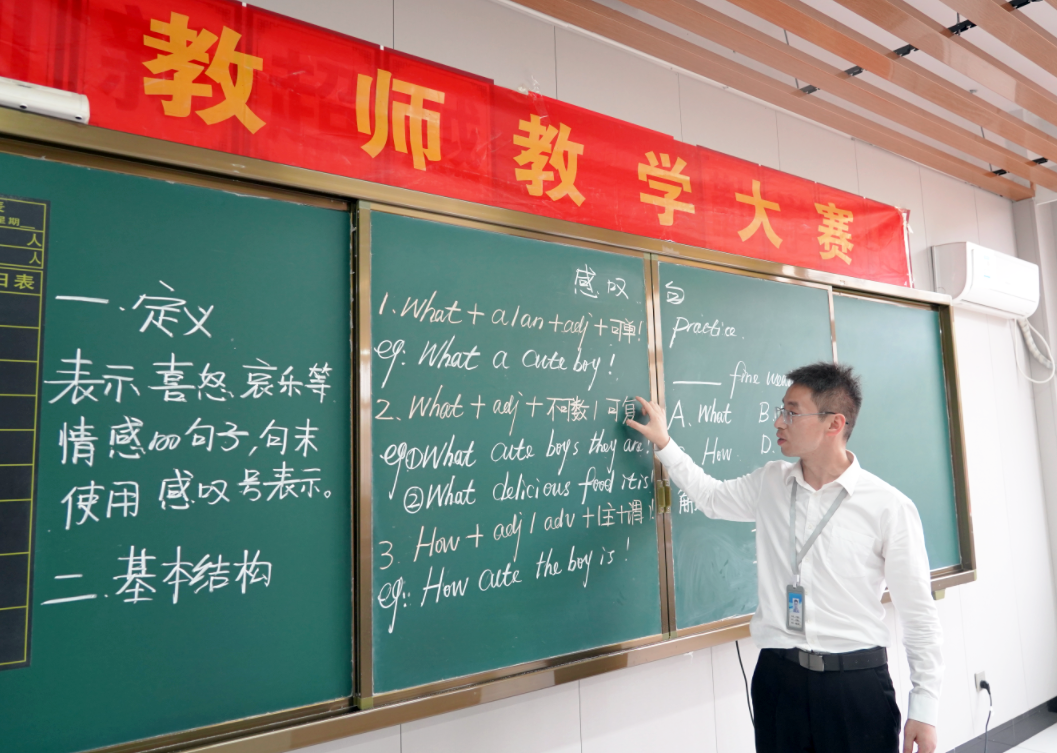 教师教学大赛
表
星期
人
人
日表
一.定义
表示喜怒哀乐等
情感的句子,句末
使用感叹号表示。
二.基本结构
感叹句
1.What+a/an+adj+可单!
eg: What a cute boy!
2.What+adj+不可数/可复
eg①What cute boys they are!
②What delicious food it is
3 How+adj/adv+主+谓!
eg: How cute the boy is!
practice.
____ fine
A.What B
How D.
解